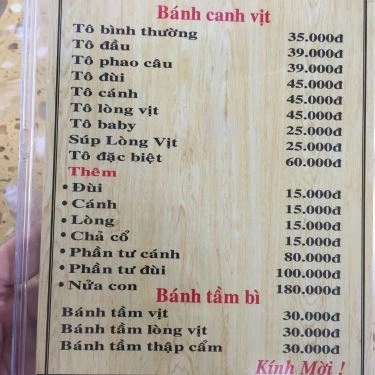 Bánh canh vịt
Tô bình thường 35.000đ
Tô đầu 39.000đ
Tô phao câu 39.000đ
Tô đùi 45.000đ
Tô cánh 45.000đ
Tô lòng vịt 45.000đ
Tô baby 25.000đ
Súp Lòng Vịt 25.000đ
Tô đặc biệt 60.000đ
Thêm
• Đùi 15.000đ
• Cánh 15.000đ
• Lòng 15.000đ
• Chả cổ 15.000đ
• Phần tư cánh 80.000đ
• Phần tư đùi 100.000đ
• Nửa con 180.000đ
Bánh tầm bì
Bánh tầm vịt 30.000đ
Bánh tầm lòng vịt 30.000đ
Bánh tầm thập cẩm 30.000đ
Kính Mời !